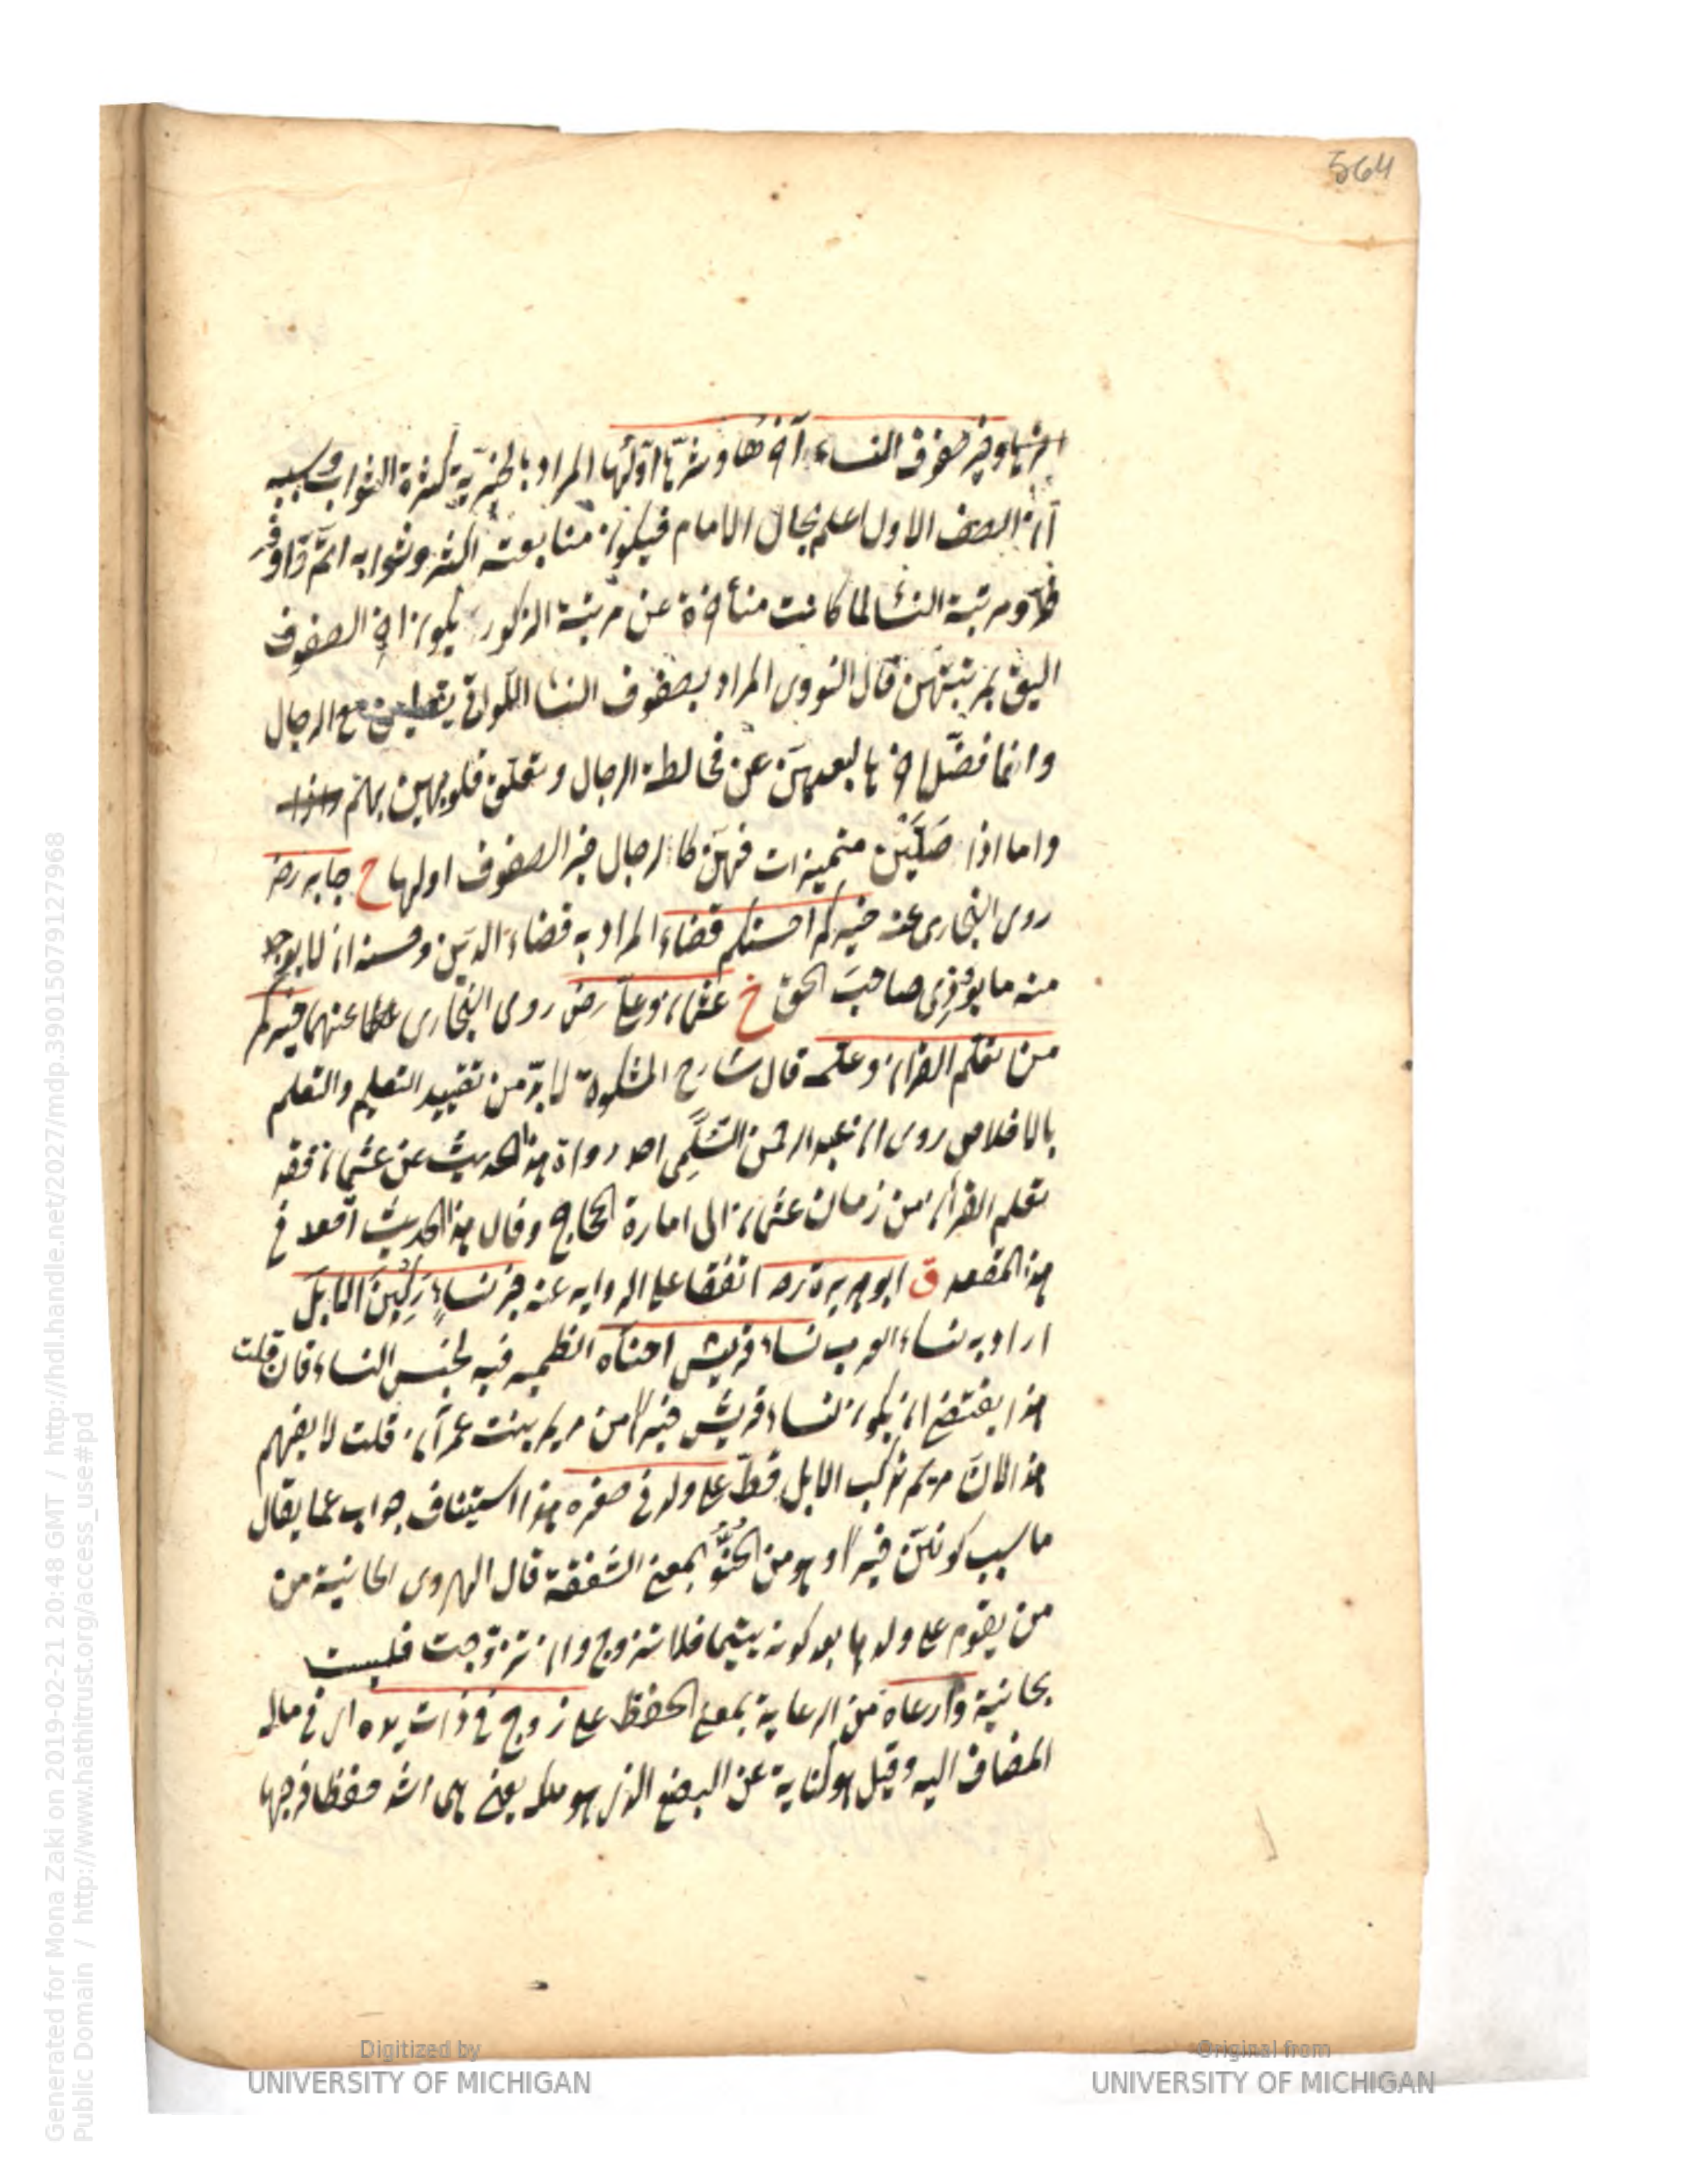 564
آخرها وخير صفوف النساء آخرها وشرّها اوّلها المراد بالخيريّة كثرة الثواب وسببه
ان الصف الاول اعلم بحال الامام فيكون متابعته اكثر وثوابه اتمّ واوفر
ومرتبة النسا لما كانت متأخرة عن مرتبة الذكور يكون اخر الصفوف
اليق بمرتبتهن قال النووى المراد بصفوف النسا اللواتى يصلين مع الرجال
وانما فضّل اخرها لبعدهنّ عن مخالطة الرجال وتعلّق قلوبهن بهم
واما اذا صَلَّيْنَ متميزات فهنّ كالرجال خير الصفوف اولها خ جابر رضـ
روى البخارى عنه خيركم احسنكم قضاء المراد به قضاء الدَين وحسنه ان لا يوجد
منه ما يؤذى صاحبَ الحق خ عثمان وعلى رضـ روى البخارى عنهما خيركم
من تعلم القران وعلمه قال شارح المشكوة لا بدّ من تقييد التعليم والتعلم
بالاخلاص روى ان عبد الرحمن السُّلَمِى احد رواة هذا الحديث عن عثمان فقد
تعلم القران من زمان عثمان الى امارة الحجاج وقال هذا الحديث اقعد فى
هذا المقعد ق ابو هريرة رضـ اتفقا على الرواية عنه خير نساءٍ رَكِبْنَ الابلَ
اراد به نساء العرب نساء قريش احناه الضمير فيه لجنس النساء فان قلت
هذا يقتضى ان يكون نساء قريش خيرا من مريم بنت عمران قلت لا يفهم
هذا لان مريم لم تركب الابل قطّ على ولد فى صغره هذا استيناف جواب عما يقال
ما سبب كونهنّ خيرا وهو من الحُنُوّ بمعنى الشفقة قال الهروى الحانية من
من يقوم على ولدها بعد كونه يتيما فلا تتزوج وان تزوّجت فليست
بحانية وارعاه من الرعاية بمعنى الحفظ على زوج فى ذات يده اى فى ماله
المضاف اليه وقيل هو كناية عن البضع الذى هو ملكه يعنى هى اشد حفظا فرجها
Generated for Mona Zaki on 2019-02-21 20:48 GMT / http://hdl.handle.net/2027/mdp.39015079127968
Public Domain / http://www.hathitrust.org/access_use#pd
Digitized by
UNIVERSITY OF MICHIGAN
Original from
UNIVERSITY OF MICHIGAN